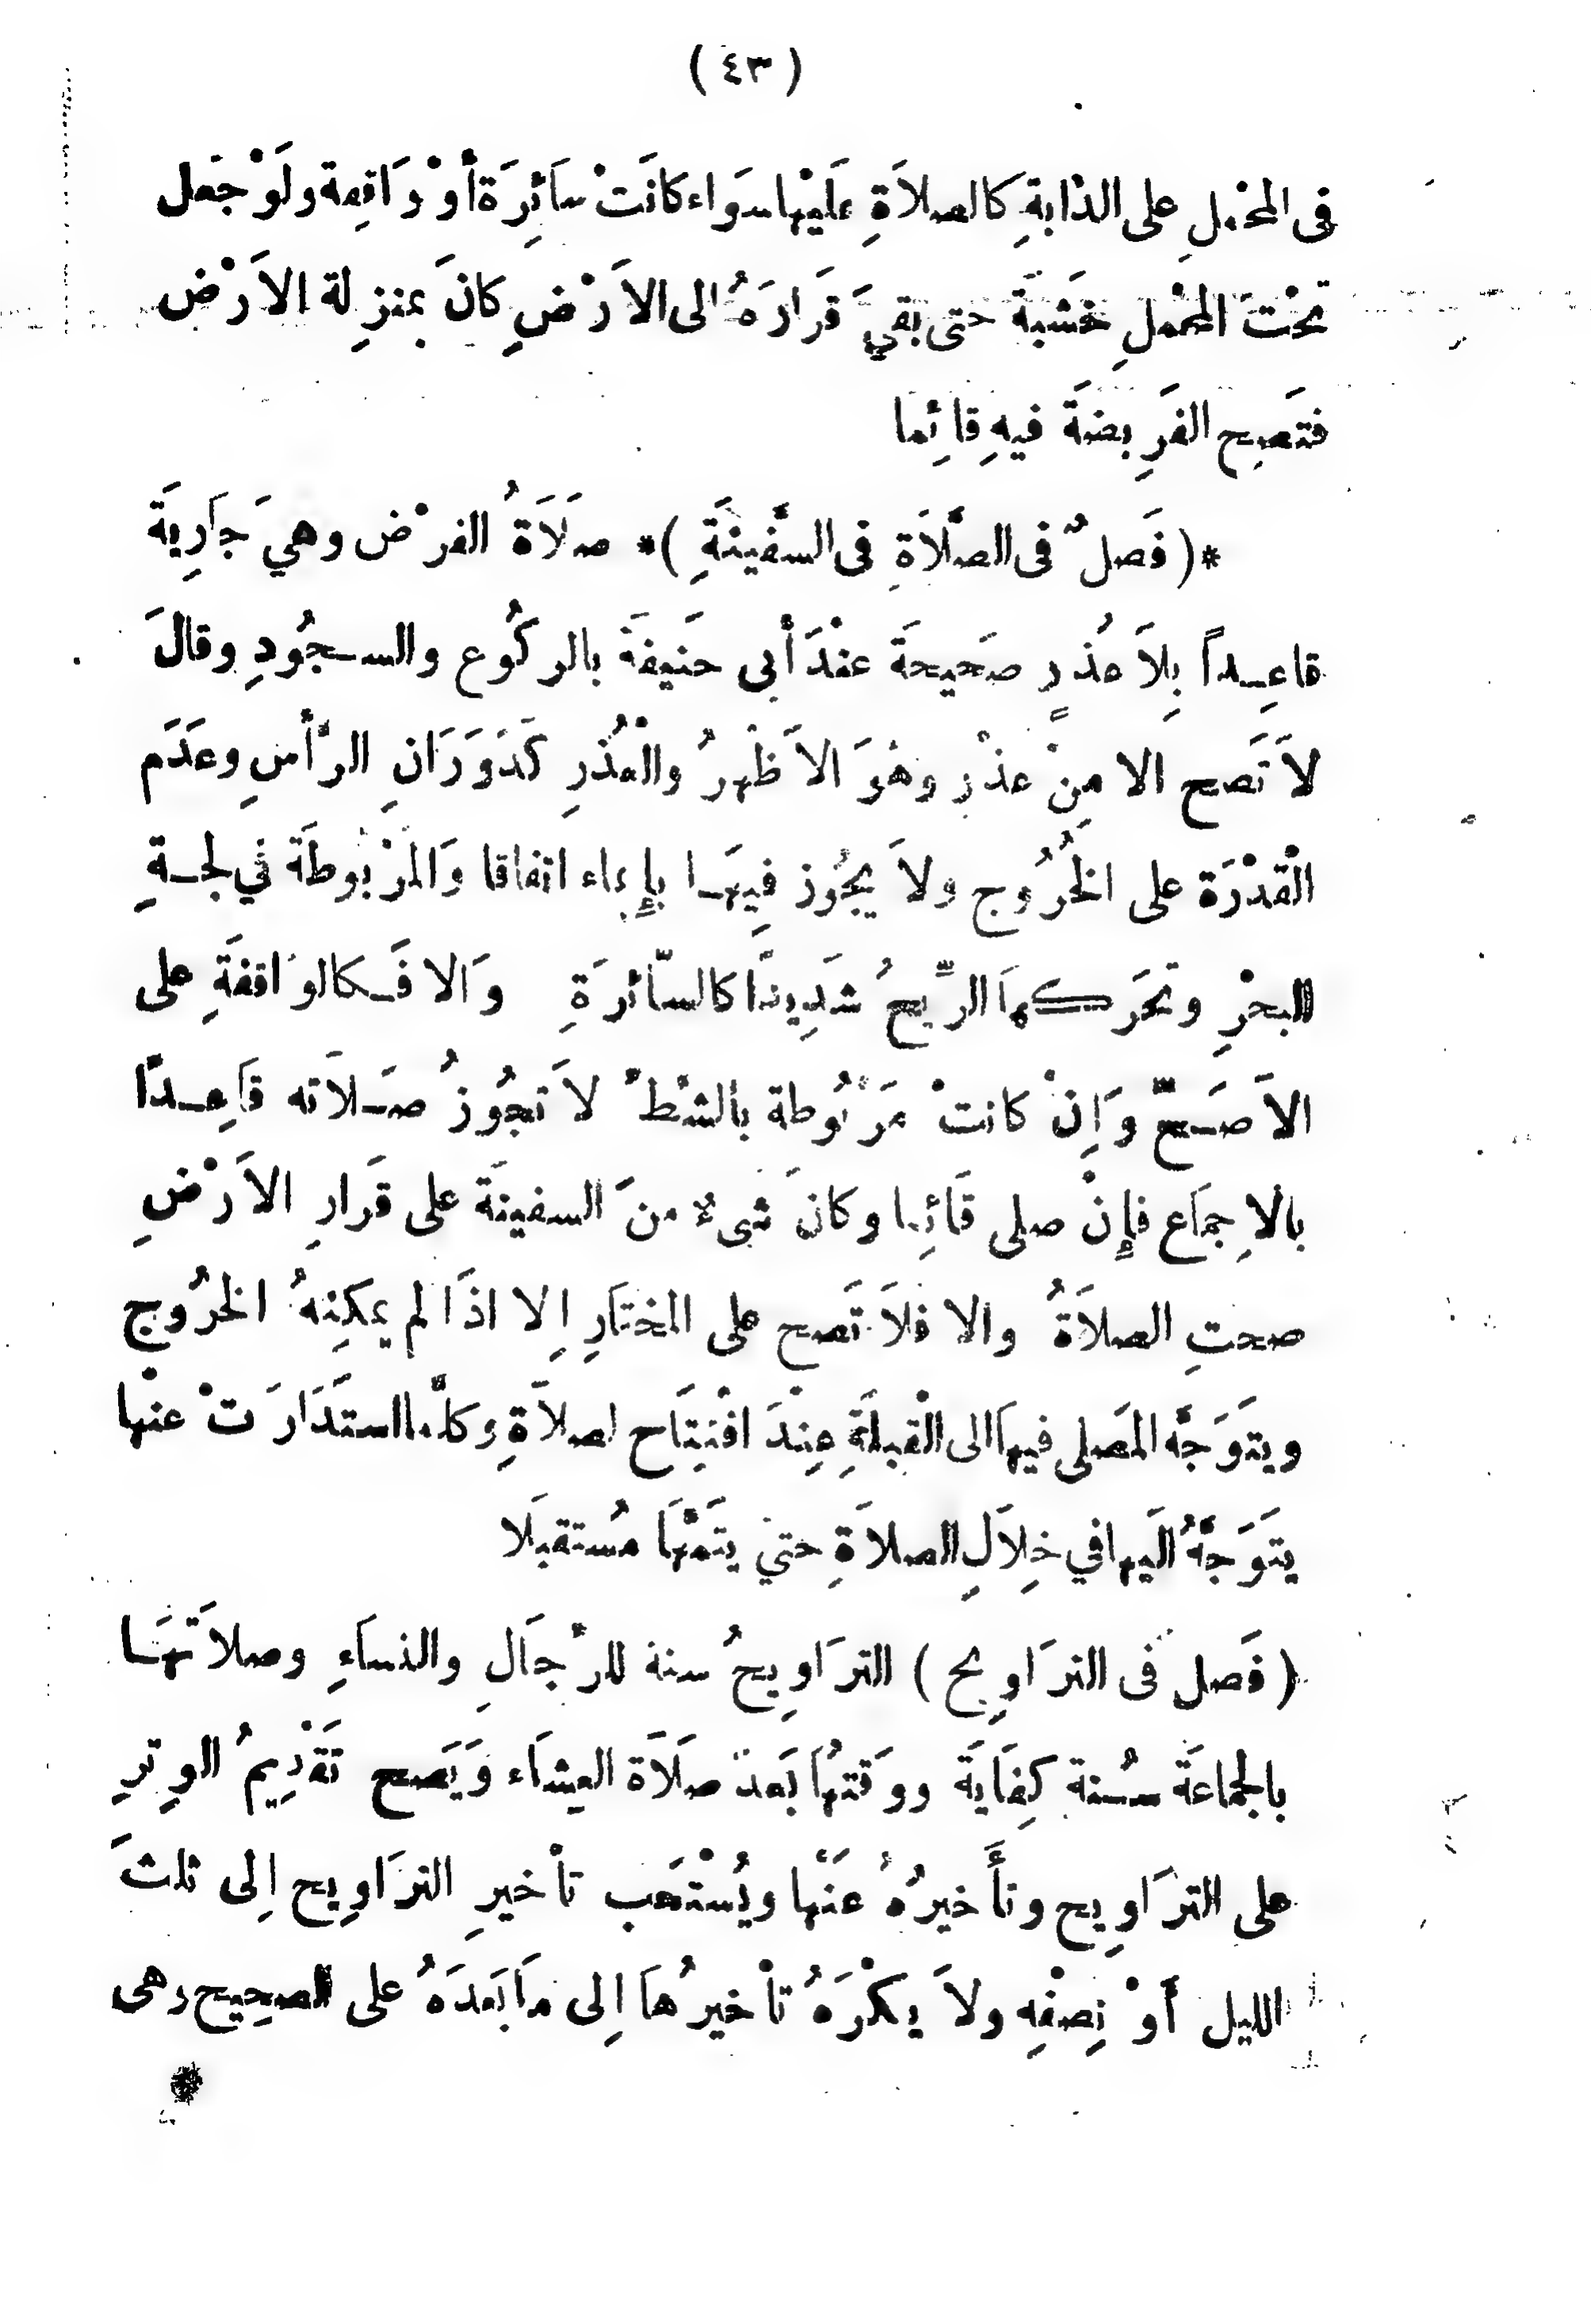 ( ٤٣ )
فى المحْملِ على الدَّابةِ كالصلاَةِ عَلَيْها سَوَاء كانَتْ سَائِرَة أَوْ وَاقِفة ولَوْ جَعل
تَحْتَ المحْملِ خَشَبَة حتى بَقيَ قَرَارَهُ الى الاَرْضِ كانَ بمنزِلة الاَرْض
فتَصِح الفَرِيضَةَ فيهِ قائِما
*( فَصلٌ فى الصَّلاَةِ فى السَّفينَةِ )* صَلاَةُ الفرْض وهيَ جَارِيَة
قاعِـداً بِلاَ عُذرٍ صَحيحَة عنْدَ أبى حَنيفَة بالركُوع والسـجُودِ وقالَ
لاَ تَصح الا مِنْ عذْر وهُوَ الاَظْهرُ والْعُذْرِ كَدَوَرَانِ الرَّأسِ وعَدَم
الْقدْرَة على الخُرُوج ولاَ يجُوز فِيهَـا بإِيماء اتفاقا وَالمَرْبُوطَة في لجـةِ
البحْرِ وتحَركهاَ الرِّيحُ شَدِيدًا كالسَّائرَةِ وَالا فَـكالوَاقفَةِ على
الاَصَـحِّ وَإِنْ كانتْ مَرْبُوطة بالشطْ لاَ تجُوزُ صَـلاَته قَاعِـدًا
بالاِجمَاع فإِنْ صلى قَائِما وكانَ شىءٌ منَ السفينَة على قَرارِ الاَرْضِ
صحتِ الصلاَةُ والا فلاَ تَصح على المختَارِ إِلا اذَا لم يمكِنهُ الخرُوج
ويتوَجَّهُ المَصلى فيهاَ الى الْقبلَةِ عِنْدَ افْتِتَاح لصلاَةِ وكلَّما استَدَارَتْ عنْها
يتَوَجَّهُ الَيها في خِلاَلِ الصلاَةِ حتيْ يتمَّهَا مُستقبَلا
( فَصل فى الترَاوِيح ) الترَاوِيحُ سنة للرْجَالِ والنساَءِ وصلاَتهَـا
بالجماعَة سُـنة كِفَايَة ووَقتهُا بَعدَ صَلاَة العِشَاء وَيَصح تَقْدِيمُ الوِترِ
على الترَاوِيح وتأَخيرُهُ عَنْها ويُسْتَحَب تأخيرِ الترَاوِيح اِلى ثلثَ
الليل أَوْ نِصفْهِ ولاَ يكْرَهُ تأْخيرُهَا اِلى مَا بَعدَهُ على الصحِيح وهى